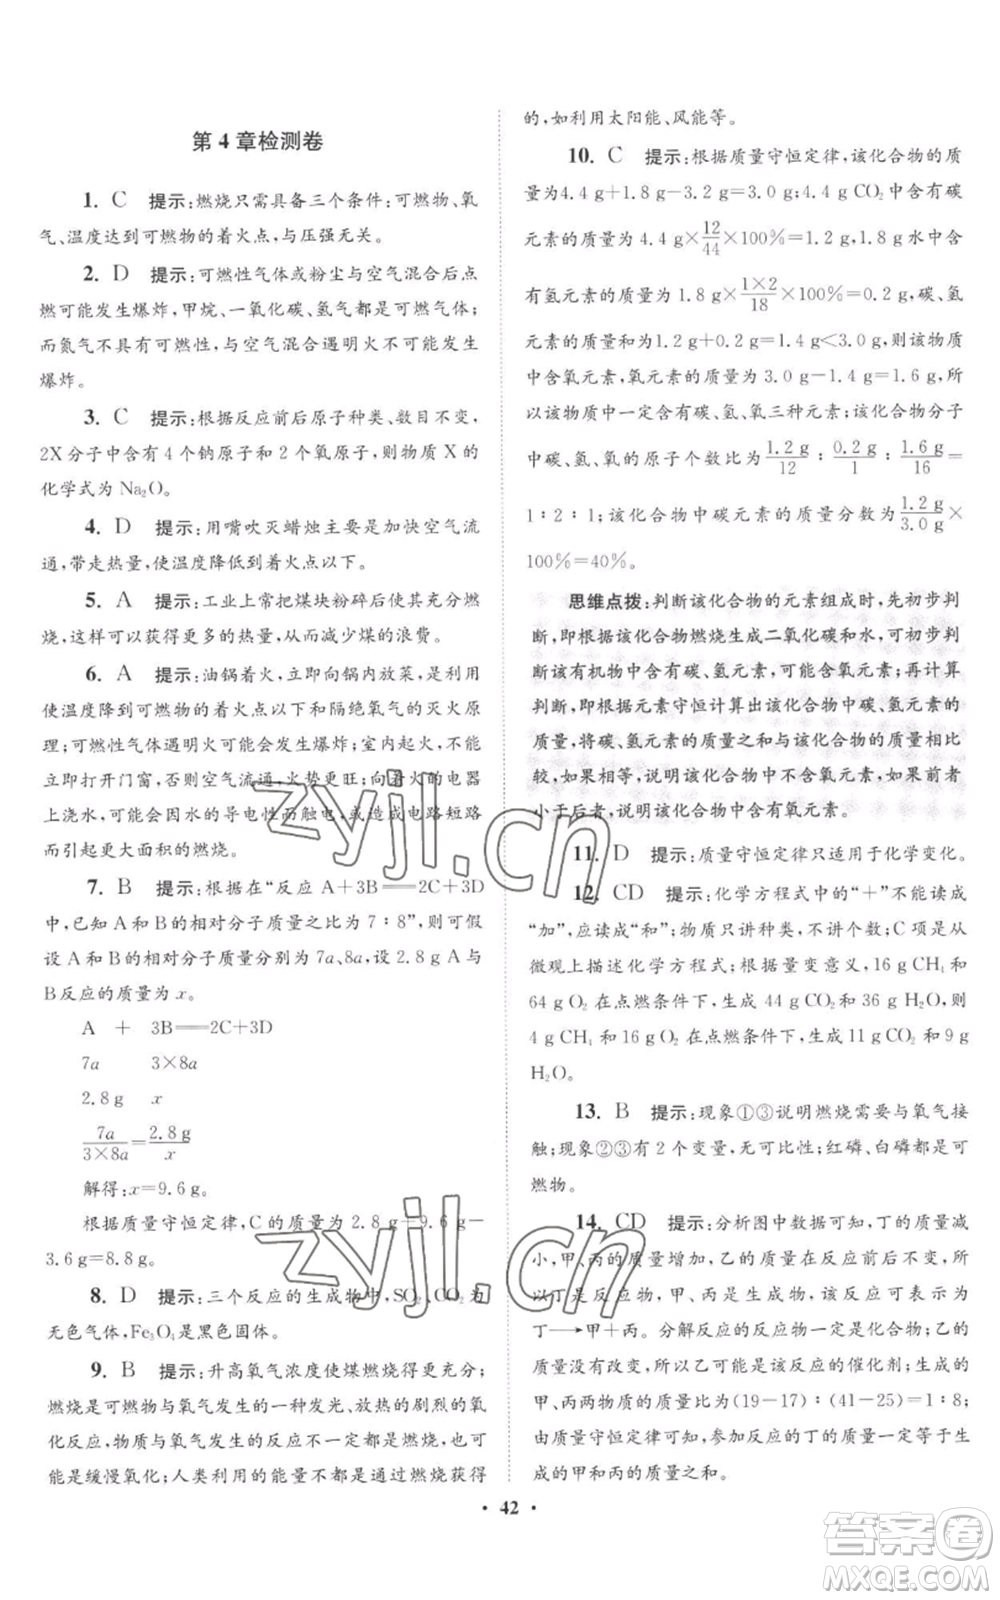 第4章检测卷
1. C 提示:燃烧只需具备三个条件:可燃物、氧
气、温度达到可燃物的着火点,与压强无关。
2. D 提示:可燃性气体或粉尘与空气混合后点
燃可能发生爆炸,甲烷、一氧化碳、氢气都是可燃气体;
而氮气不具有可燃性,与空气混合遇明火不可能发生
爆炸。
3. C 提示:根据反应前后原子种类、数目不变,
2X分子中含有4个钠原子和2个氧原子,则物质X的
化学式为Na₂O。
4. D 提示:用嘴吹灭蜡烛主要是加快空气流
通,带走热量,使温度降低到着火点以下。
5. A 提示:工业上常把煤块粉碎后使其充分燃
烧,这样可以获得更多的热量,从而减少煤的浪费。
6. A 提示:油锅着火,立即向锅内放菜,利用了
使温度降到可燃物的着火点以下和隔绝氧气的灭火原
理;可燃性气体遇明火可能会发生爆炸;室内起火,不能
立即打开门窗,否则空气流通,火势更旺;向着火的电器
上浇水,可能会因水的导电性而触电,或造成电路短路
而引起更大面积的燃烧。
7. B 提示:根据在“反应A+3B══2C+3D
中,已知A和B的相对分子质量之比为7∶8”,则可假
设A和B的相对分子质量分别为7a、8a。设2.8 g A与
B反应的质量为x。
A + 3B══2C+3D
7a 3×8a
2.8 g x
7a/3×8a=2.8 g/x
解得:x=9.6 g。
根据质量守恒定律,C的质量为2.8 g+9.6 g-
3.6 g=8.8 g。
8. D 提示:三个反应的生成物中,SO₂、CO₂为
无色气体,Fe₃O₄是黑色固体。
9. B 提示:升高氧气浓度使煤燃烧得更充分;
燃烧是可燃物与氧气发生的一种发光、放热的剧烈的氧
化反应,物质与氧气发生的反应不一定都是燃烧,也可
能是缓慢氧化;人类利用的能量不都是通过燃烧获得
的,如利用太阳能、风能等。
10. C 提示:根据质量守恒定律,该化合物的质
量为4.4 g+1.8 g-3.2 g=3.0 g;4.4 g CO₂中含有碳
元素的质量为4.4 g×12/44×100%=1.2 g,1.8 g水中含
有氢元素的质量为1.8 g×1×2/18×100%=0.2 g,碳、氢
元素的质量和为1.2 g+0.2 g=1.4 g<3.0 g,则该物质
中一定含氧元素,氧元素的质量为3.0 g-1.4 g=1.6 g,所
以该物质中一定含有碳、氢、氧三种元素;该化合物分子
中碳、氢、氧的原子个数比为1.2 g/12∶0.2 g/1∶1.6 g/16=
1∶2∶1;该化合物中碳元素的质量分数为1.2 g/3.0 g×
100%=40%。
思维点拨:判断该化合物的元素组成时,先初步判
断,即根据该化合物燃烧生成二氧化碳和水,可初步判
断该有机物中含有碳、氢元素,可能含氧元素;再计算
判断,即根据元素守恒计算出该化合物中碳、氢元素的
质量,将碳、氢元素的质量之和与该化合物的质量相比
较,如果相等,说明该化合物中不含氧元素,如果前者
小于后者,说明该化合物中含有氧元素。
11. D 提示:质量守恒定律只适用于化学变化。
12. CD 提示:化学方程式中的“+”不能读成
“加”,应读成“和”;物质只讲种类,不讲个数;C项是从
微观上描述化学方程式;根据质量变变意义,16 g CH₄和
64 g O₂在点燃条件下,生成44 g CO₂和36 g H₂O,则
4 g CH₄和16 g O₂在点燃条件下,生成11 g CO₂和9 g
H₂O。
13. B 提示:现象①③说明燃烧需要与氧气接
触;现象②③有2个变量,无可比性;红磷、白磷都是可
燃物。
14. CD 提示:分析图中数据可知,丁的质量减
小,甲、丙的质量增加,乙的质量在反应前后不变,所
以丁是反应物,甲、丙是生成物,该反应可表示为
丁→甲+丙。分解反应的反应物一定是化合物;乙的
质量没有改变,所以乙可能是该反应的催化剂;生成的
甲、丙两种物质的质量比为(19-17)∶(41-25)=1∶8。
由质量守恒定律可知,参加反应的丁的质量一定等于生
成的甲和丙的质量之和。
• 42 •
zyjl.cn
zyjl.cn
答案圈
MXQE.COM